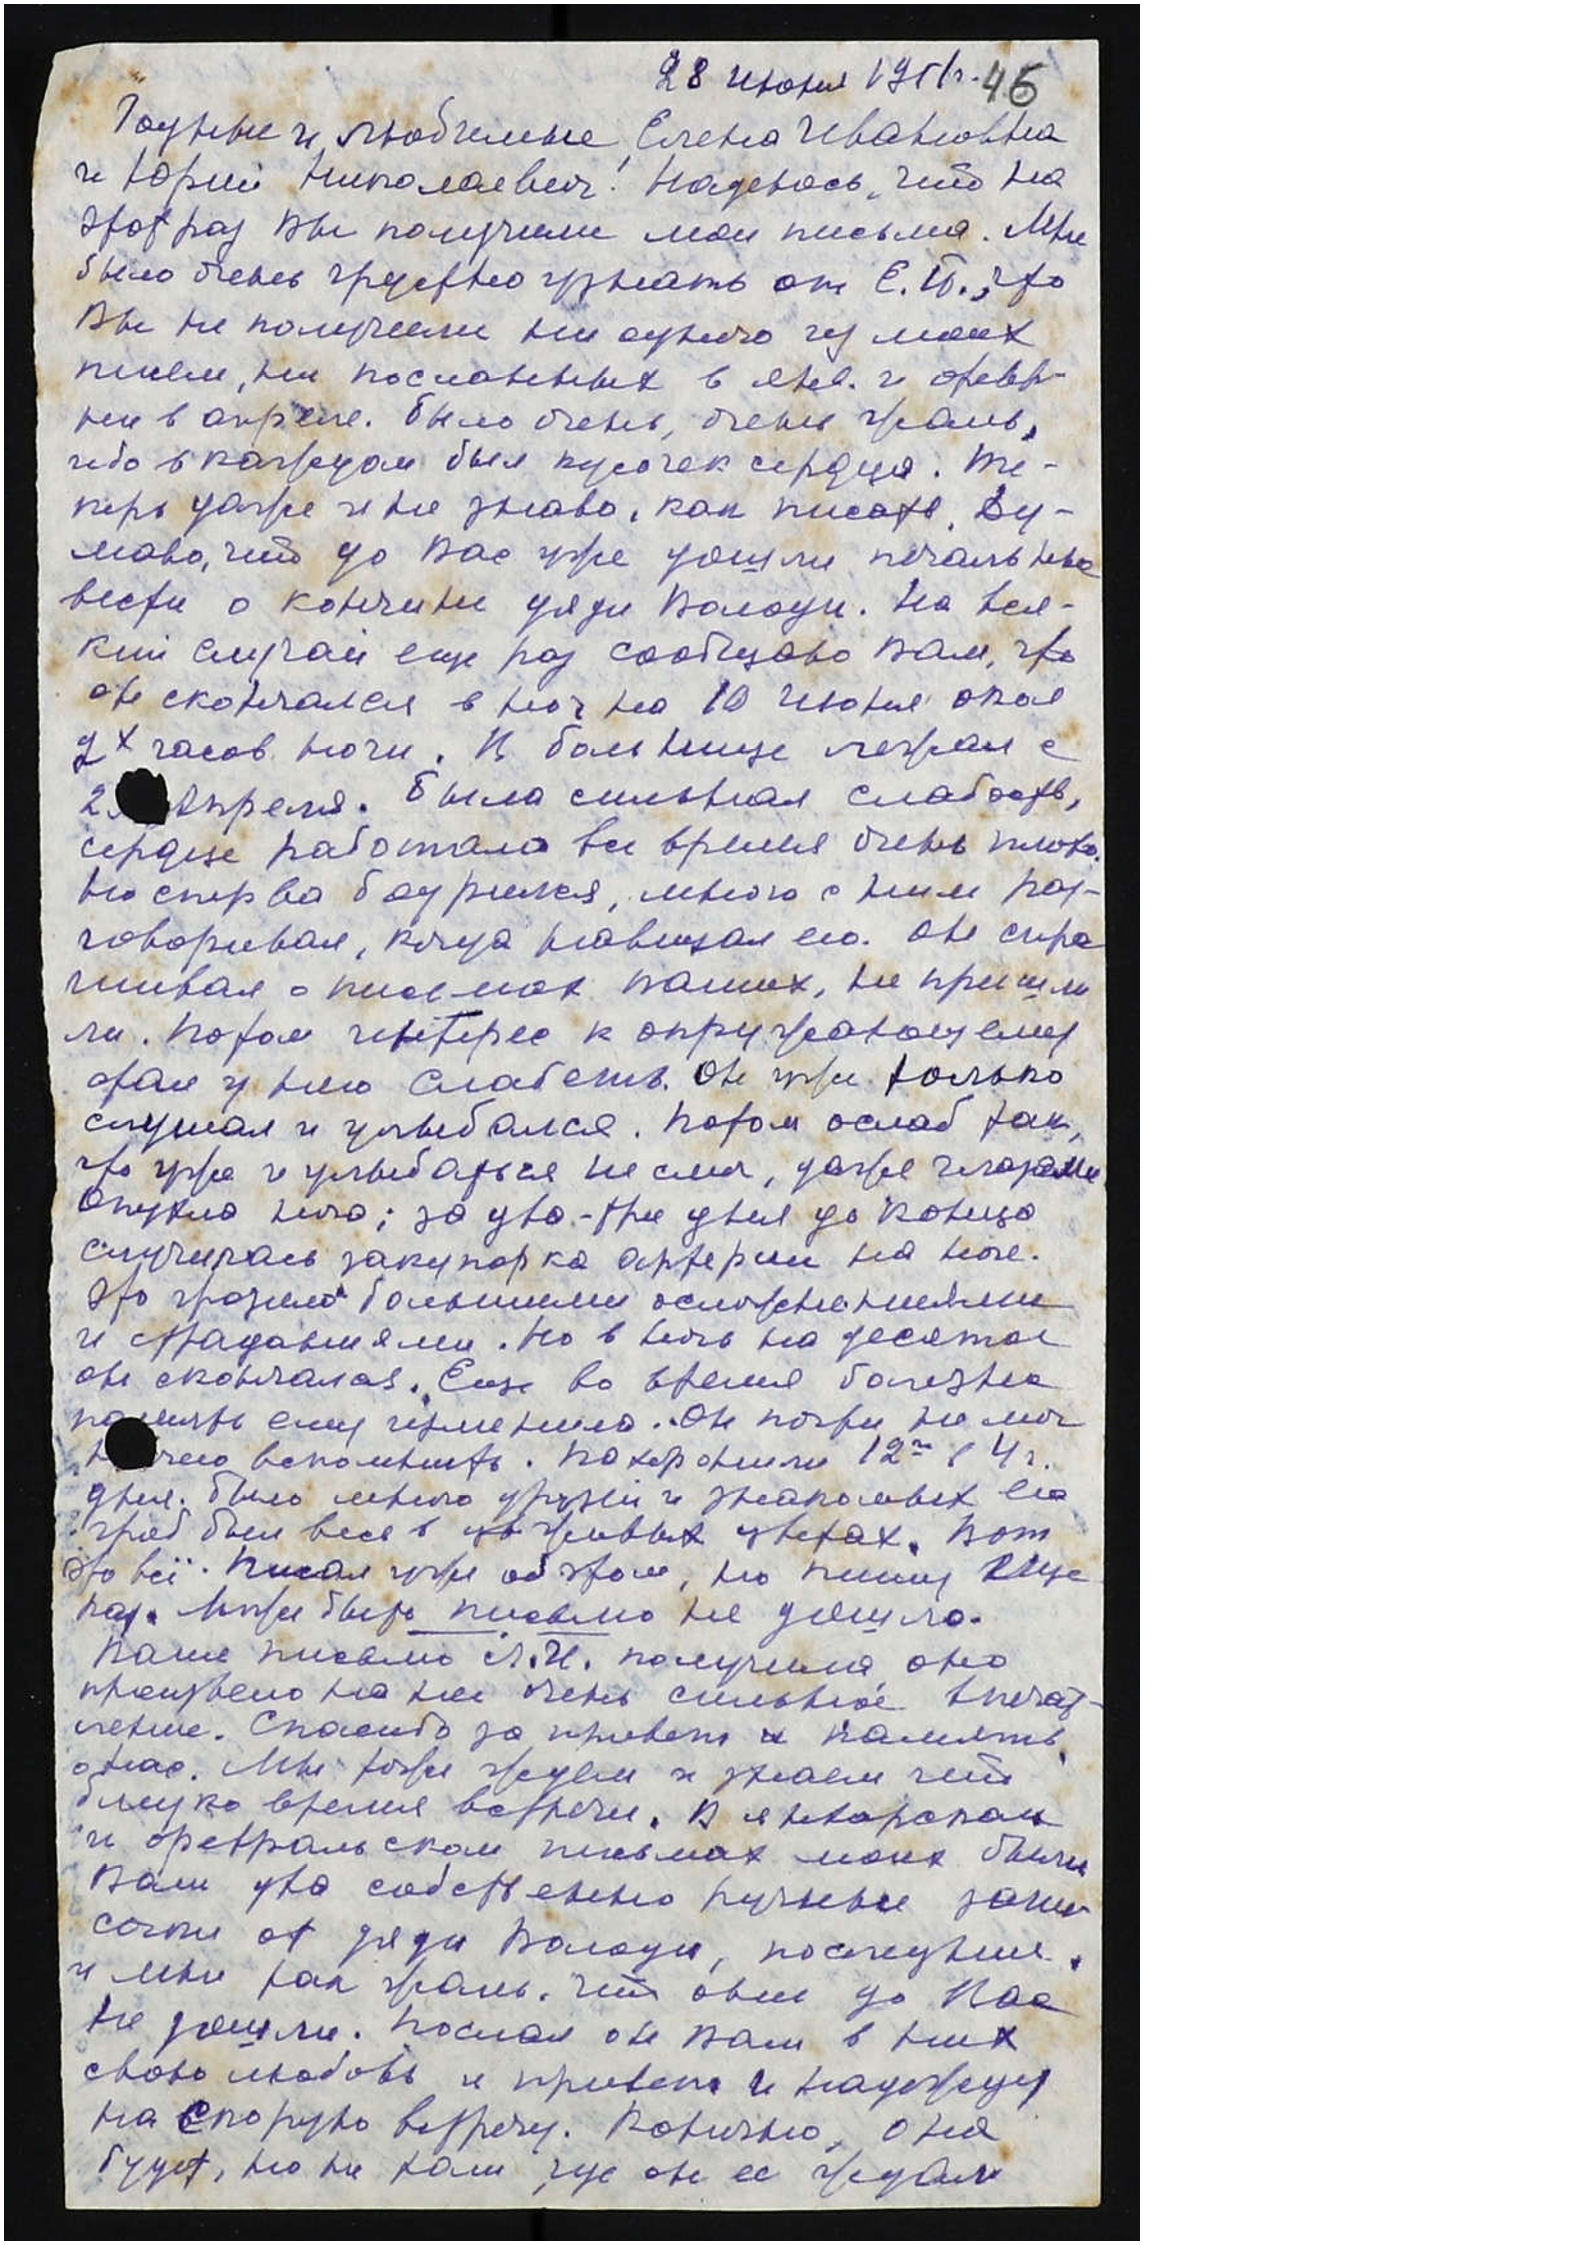 28 июня 1951г. 45
Родные и любимые, Елена Ивановна
и Юрий Николаевич! Надеюсь, что на
этот раз Вы получили мои письма. Мне
было очень грустно узнать от Е.П., что
Вы не получили ни одного из моих
писем, ни посланных в янв. и февр-
ни в апреле. Было очень, очень жаль,
ибо в каждом был кусочек сердца. Те-
перь даже и не знаю, как писать. Ду-
маю, что до Вас уже дошли печальные
вести о кончине дяди Володи. На вся-
кий случай еще раз сообщаю Вам, что
он скончался в ноч на 10 июня окол
2х часов ночи. В больнице лежал с
2 апреля. Была сильная слабость,
сердце работало все время очень плохо.
Но сперва бодрился, много с ним раз-
говоривал, когда навещал его. Он спра
шивал о письмах Ваших, не пришли
ли. Потом интерес к окружающему
стал у него слабеть. Он уже только
слушал и улыбался. Потом ослаб так,
что уже и улыбаться не смог, даже глазами
Опухла нога; за два-три дня до конца
случилась закупорка артерии на ноге.
Это грозило большими осложнениями
и страданиями. Но в ночь на десятое
он скончался. Еще во время болезни
память ему изменила. Он почти не мог
ничего вспомнить. Похоронили 12го в 4 г.
дня. Было много друзей и знакомых его
гроб был весь в живых цветах. Вот
это всё. Писал уже об этом, но пишу еще
раз. Может быть письмо не дошло.
Ваше письмо Л.И. получила, оно
произвело на нее очень сильное впечат-
ление. Спасибо за привет и память
о нас. Мы тоже ждем и знаем что
близко время встречи. В январском
и февральском письмах моих были
Вам два собственно ручные запи
сочки от дяди Володи, последние.
и мне так жаль, что они до Вас
не дошли. Послал он Вам в них
свою любовь и привет и надежду
на скорую встречу. Конечно, она
будет, но не там, где он ее ждал